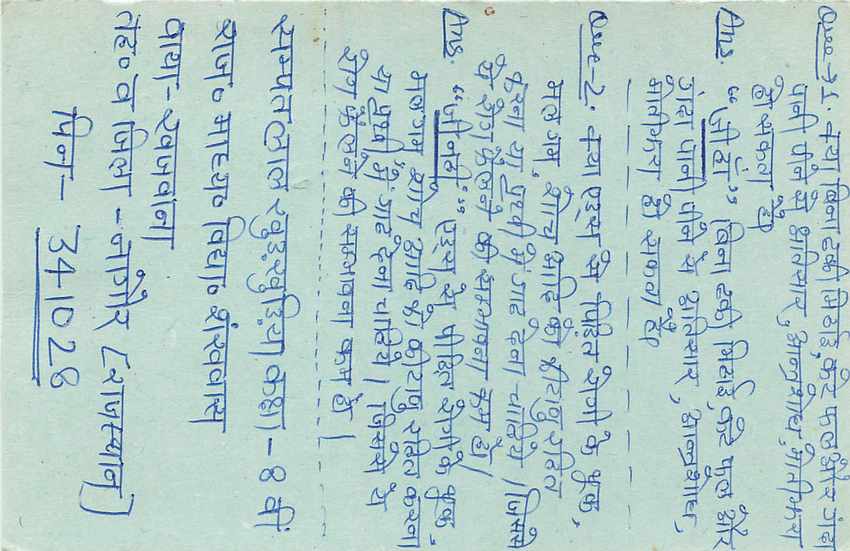 Que-1. क्या बिना ढकी मिठाई, कटे फल और गंदा
पानी पीने से अतिसार, आन्त्रशोथ, मोतीझरा
हो सकता है।
Ans. "जी हां" बिना ढकी मिठाई, कटे फल और
गंदा पानी पीने से अतिसार, आन्त्रशोथ,
मोतीझरा हो सकता है।
Que-2. क्या एड्स से पीड़ित रोगी के थूक,
मल जम, शौच आदि को कीटाणु रहित
करना या पृथ्वी में गाड़ देना चाहिये। जिससे
से रोग फैलने की सम्भावना कम हो।
Ans. "जी नही" एड्स से पीड़ित रोगी के थूक,
मलजम शौच आदि को कीटाणु रहित करना
या पृथ्वी में गाड़ देना चाहिये। जिससे से
रोग फैलने की सम्भावना कम हो।
सम्पतलाल खुड़खुड़िया कक्षा-8 वीं
राज० माध्य० विद्या० शंखवास
वाया-खजवाना
तह० व जिला-नागौर (राजस्थान)
पिन- 341028